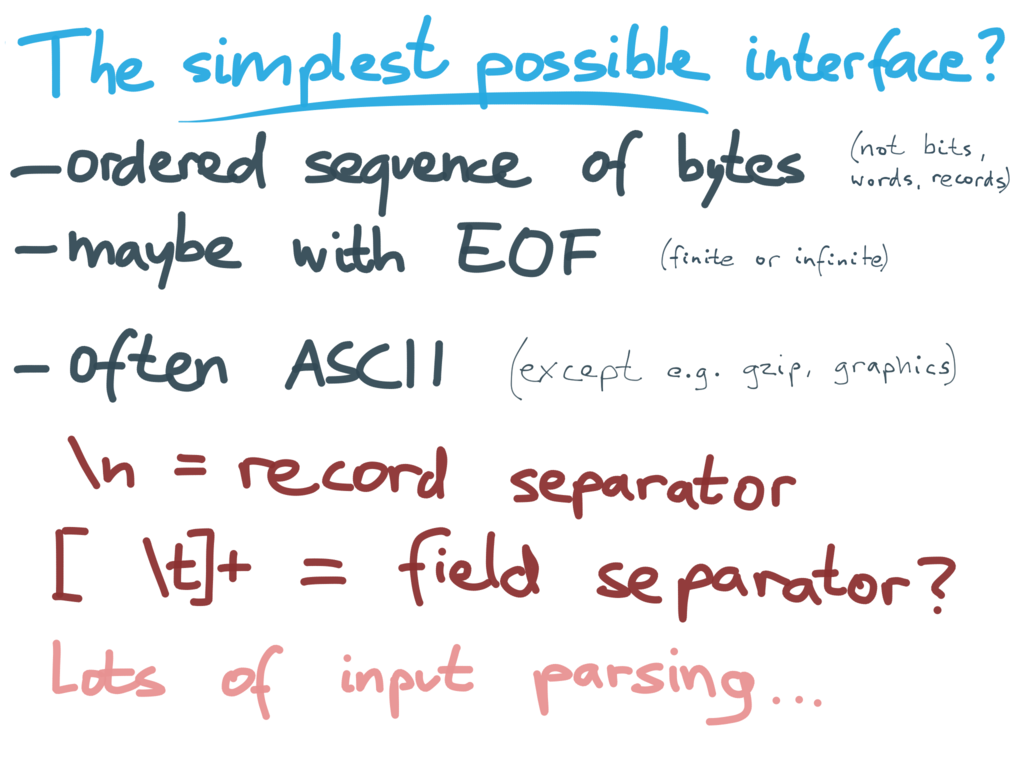 The simplest possible interface?
- ordered sequence of bytes (not bits, words, records)
- maybe with EOF (finite or infinite)
- often ASCII (except e.g. gzip, graphics)
\n = record separator
[ \t]+ = field separator?
Lots of input parsing...